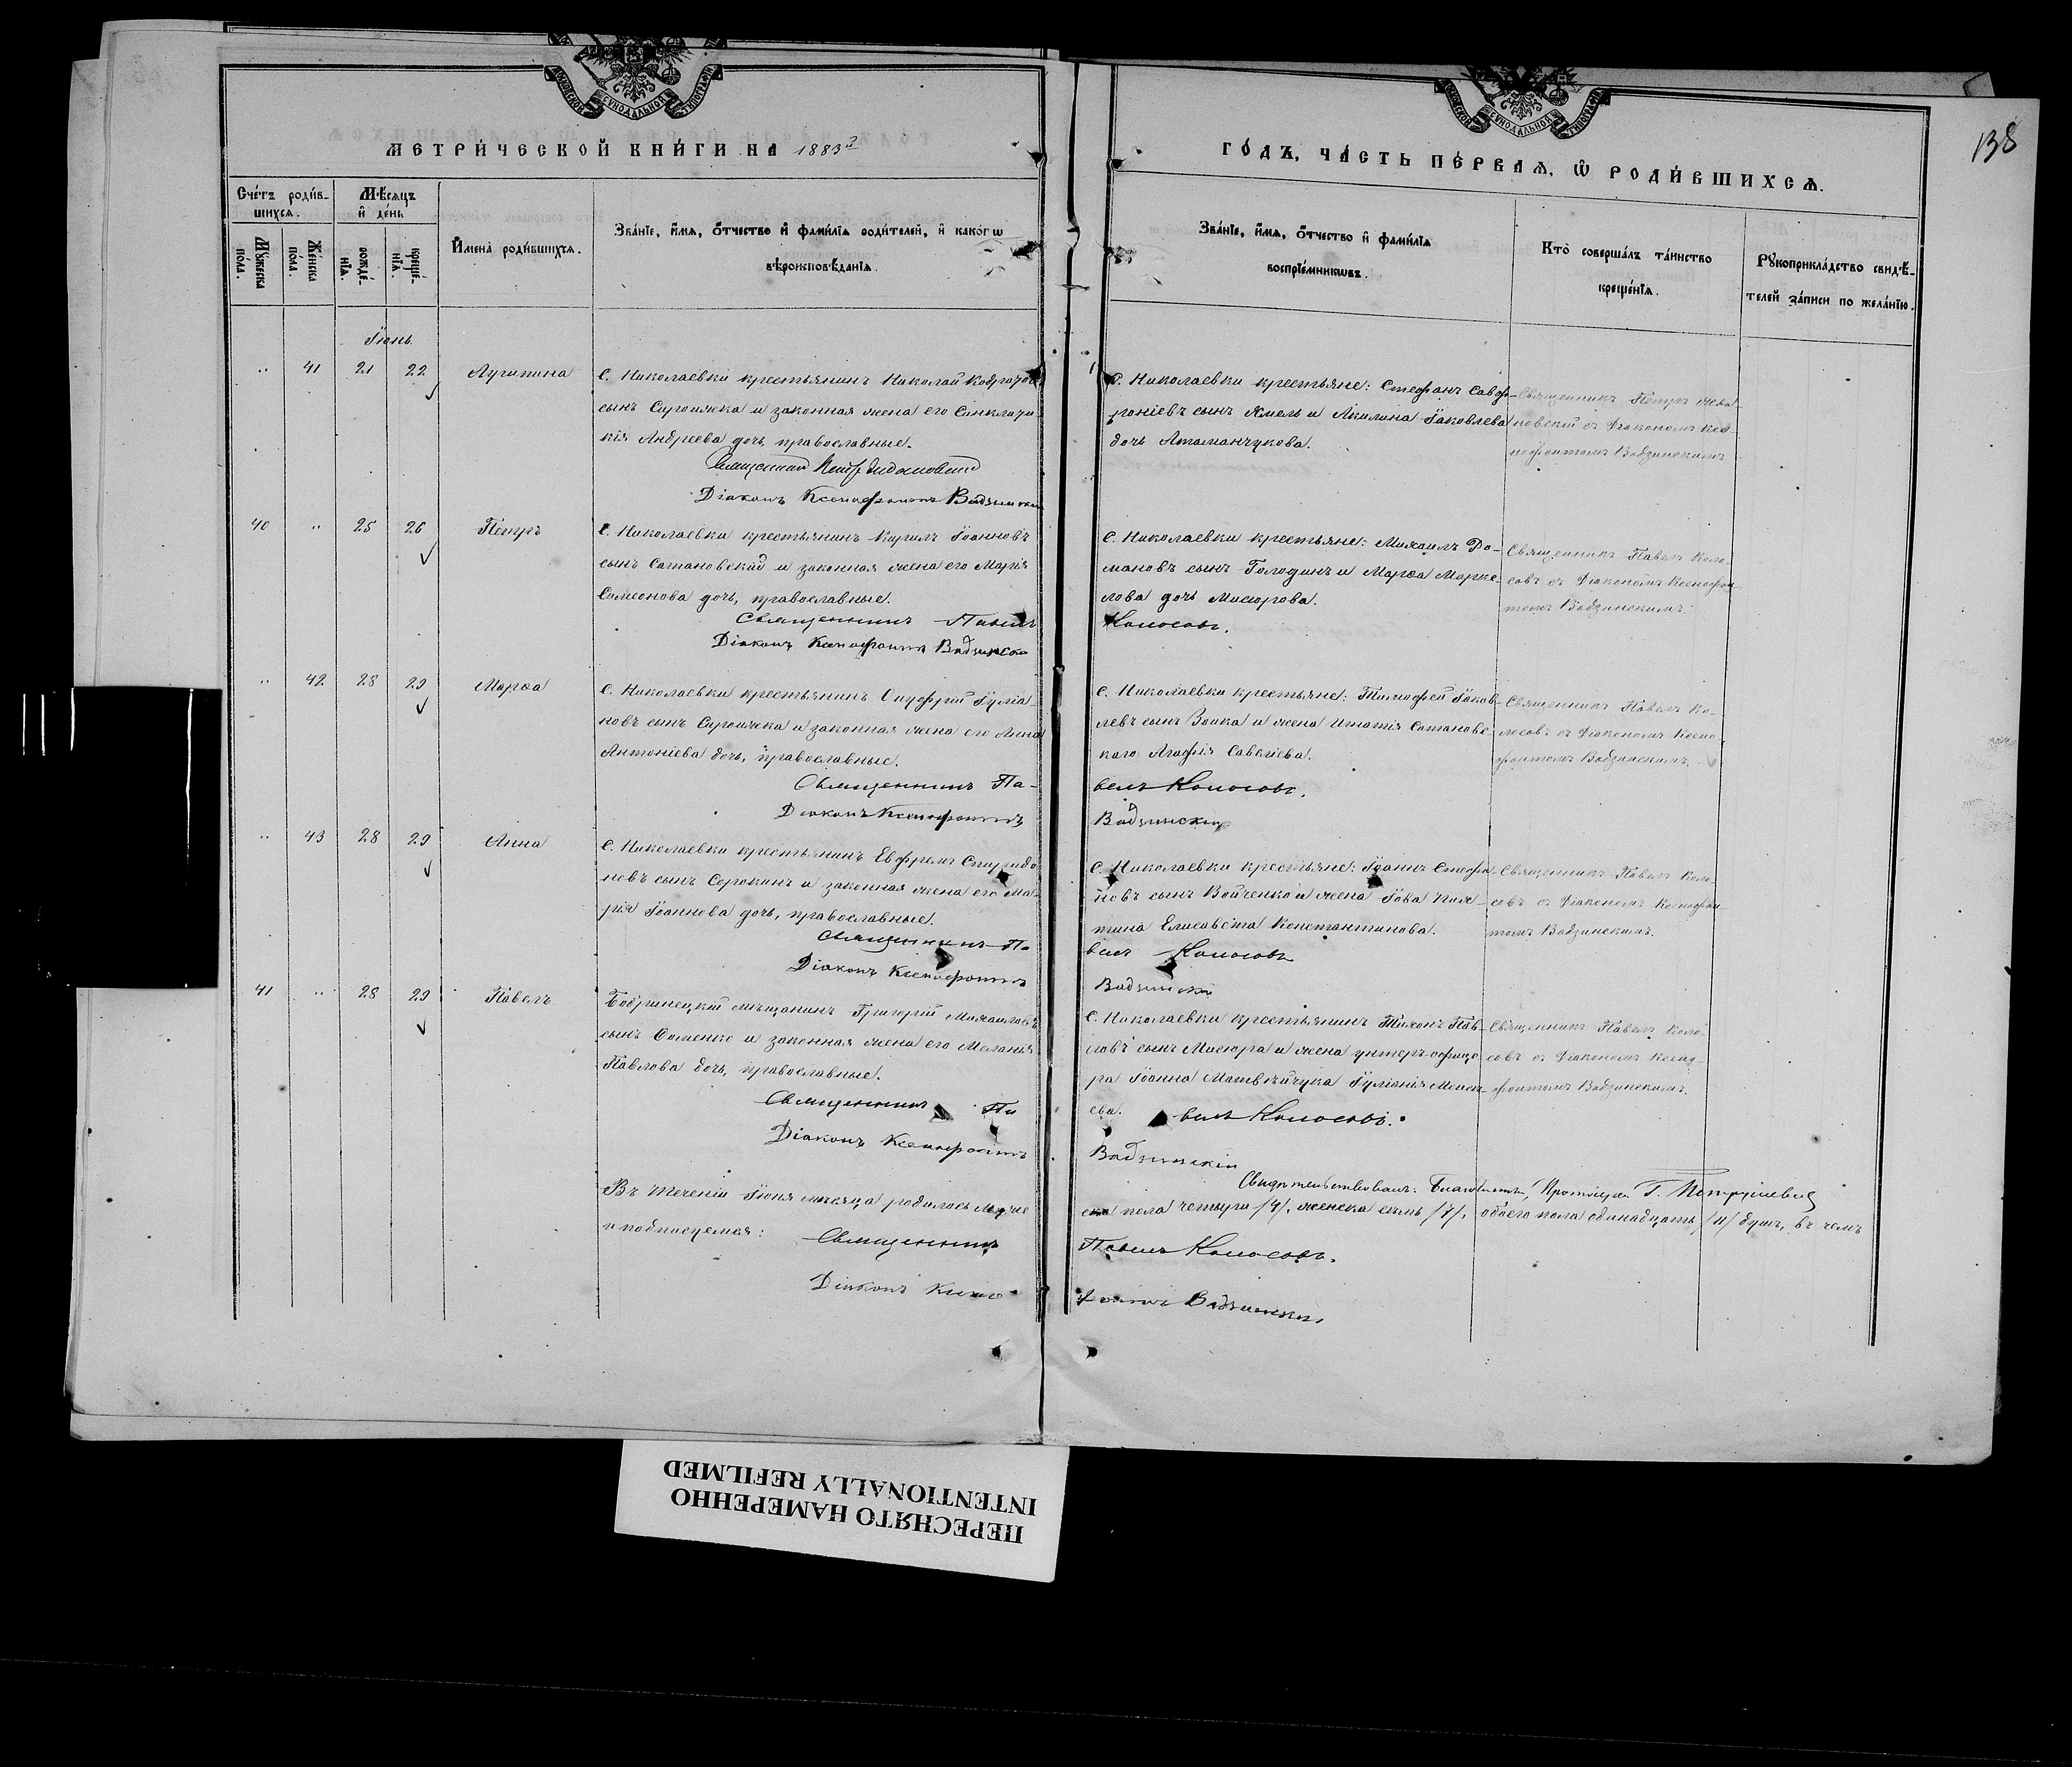 МЕТРИ́ЧЕСКОЙ КНИ́ГИ НА 1883й
ГО́ДЪ, ЧА́СТЬ ПЕ́РВАѦ, Ѡ РОДИ́ВШИХСѦ.
138
Сче́тъ роди́в-
шихсѧ.
Мѣ́сѧцъ
и҆ де́нь
Мꙋ́жеска по́ла.
Же́нска по́ла.
рожде́нїѧ.
креще́нїѧ.
И҆мена̀ роди́вшихсѧ.
Зва́нїе, и҆́мѧ, о҆́тчество и҆ фами́лїѧ роди́телей, и҆ како́гѡ
вѣроисповѣ́данїѧ.
Зва́нїе, и҆́мѧ, о҆́тчество и҆ фами́лїѧ
воспрїе́мниковъ.
Кто̀ соверша́лъ та́инство
креще́нїѧ.
Рꙋкоприкла́дство свидѣ́-
телей за́писи по жела́нїю.
Іюнь
41 21 22
С. Николаевки крестьянинъ Николай
сынъ Сироижка и законная жена его Синклити-
кія Андреева дочь, православные.
Священникъ
Діаконъ Ксенофонтъ Вадзинскій
С. Николаевки крестьяне: Стефанъ Савф-
роніевъ сынъ Хмель и Акилина Іаковлева
дочь Атаманчукова.
Священникъ Петръ
новскій съ Діакономъ Ксе-
нофонтомъ Вадзинскимъ
40 25 26 Петръ
С. Николаевки крестьянинъ Кирилъ Іоанновъ
сынъ Сатановскій и законная жена его Марія
Симеонова дочь, православные.
Священникъ Павелъ
Діаконъ Ксенофонтъ Вадзинскій
С. Николаевки крестьяне: Михаилъ Ро-
мановъ сынъ Голодинъ и Марѳа Марке-
лова дочь Мисюрова.
Колосовъ.
Священникъ Павелъ Коло-
совъ съ Діакономъ Ксенофон-
томъ Вадзинскимъ.
42 28 29 Марѳа
С. Николаевки крестьянинъ Онуфрій Іуліа-
новъ сынъ Сироижка и законная жена его Анна
Антоніева дочь, православные.
Священникъ Па-
Діаконъ Ксенофонтъ
С. Николаевки крестьяне: Тимофей Іаков-
левъ сынъ Вовка и жена Игнатія Сатановс-
каго Агафія Савелiева.
велъ Колосовъ.
Вадзинскій
Священникъ Павелъ Ко-
лосовъ съ Діакономъ Ксено-
фонтомъ Вадзинскимъ.
43 28 29 Анна
С. Николаевки крестьянинъ Евфремъ Спиридо-
новъ сынъ Сорокинъ и законная жена его Ма-
рія Іоаннова дочь, православные.
Священникъ Па
Діаконъ Ксенофонтъ
С. Николаевки крестьяне: Іоаннъ Стефа-
новъ сынъ Войченко и жена Іова
тина Елисавета Константинова.
велъ Колосовъ
Вадзинскій
Священникъ Павелъ Коло-
совъ съ Діакономъ Ксенофон-
томъ Вадзинскимъ.
41 28 29 Павелъ
Бобринецкій мѣщанинъ Григорій Михаиловъ
сынъ Фоменко и законная жена его Меланія
Павлова дочь, православные.
Священникъ Па
Діаконъ Ксенофонтъ
С. Николаевки крестьянинъ Тихонъ Пав-
ловъ сынъ Мисюра и жена унтеръ-офице-
ра Іоанна Матвѣйчука Іуліанія Моисе-
ева.
велъ Колосовъ.
Вадзинскій
Священникъ Павелъ Коло-
совъ съ Діакономъ Ксено-
фонтомъ Вадзинскимъ.
Свидѣтельствовалъ: Протоіерей Г. Петрушевскій
Въ теченіи Іюня мѣсяца родилось муже-
ска пола четыри /4/, женска семь /7/, обоего пола одинадцать /11/ душъ, въ чемъ
и подписуемся: Священникъ
Павелъ Колосовъ.
Діаконъ Ксено-
фонтъ Вадзинскій
ПЕРЕСНЯТО НАМЕРЕННО
INTENTIONALLY REFILMED